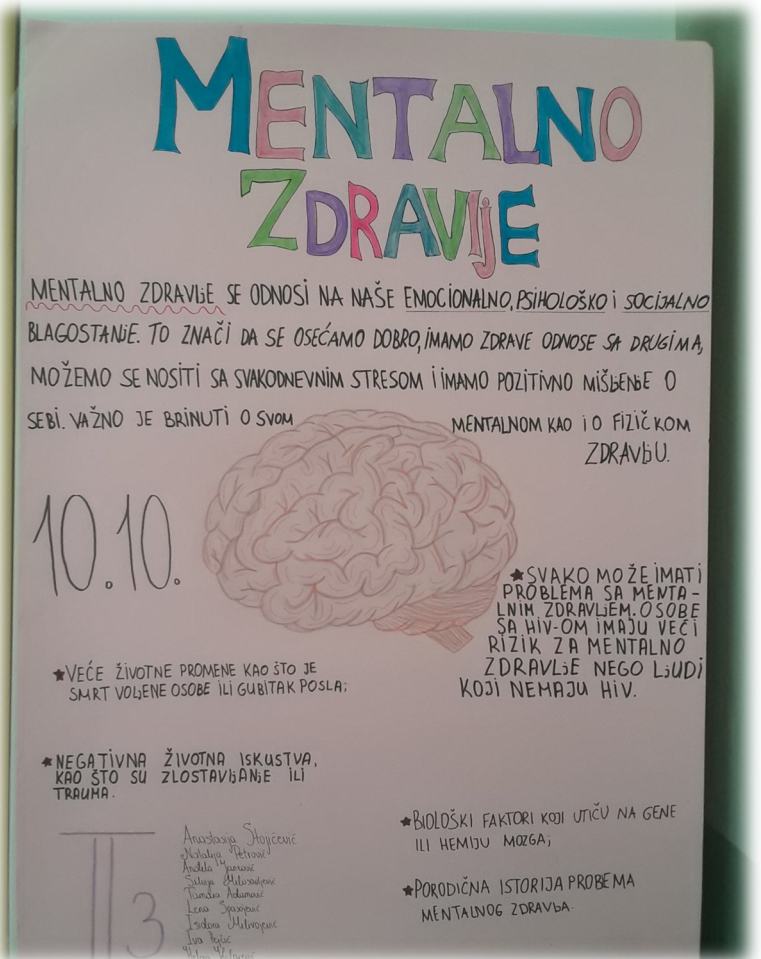 MENTALNO
ZDRAVljE
MENTALNO ZDRAVljE SE ODNOSI NA NAŠE EMOCIONALNO, PSIHOLOŠKO i SOCIJALNO
BLAGOSTANjE. TO ZNAČI DA SE OSEĆAMO DOBRO, IMAMO ZDRAVE ODNOSE SA DRUGIMA,
MOŽEMO SE NOSITI SA SVAKODNEVNIM STRESOM I IMAMO POZITIVNO MIŠljENjE O
SEBI. VAŽNO JE BRINUTI O SVOM MENTALNOM KAO i O FIZIČKOM
ZDRAVljU.
10.10.
★SVAKO MOŽE IMATI
PROBLEMA SA MENTA-
LNIM ZDRAVLJEM. OSOBE
SA HIV-OM IMAJU VEĆI
RIZIK ZA MENTALNO
ZDRAVLjE NEGO LjUDI
KOJI NEMAJU HIV.
★VEĆE ŽIVOTNE PROMENE KAO ŠTO JE
SMRT VOLjENE OSOBE ILI GUBITAK POSLA;
★NEGATIVNA ŽIVOTNA ISKUSTVA,
KAO ŠTO SU ZLOSTAVljANjE ILI
TRAUMA.
★BIOLOŠKI FAKTORI KOJI UTIČU NA GENE
ILI HEMIJU MOZGA;
★PORODIČNA ISTORIJA PROBEMA
MENTALNOG ZDRAVljA.
II3
Anastasija Stojićević
Natalija Petrović
Anđela
Milosavljević
Tamara Adamović
Lena Spasojević
Isidora Milivojević
Iva